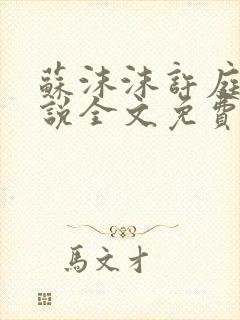 蘇沫沫許庭
說全文免費
馬文才